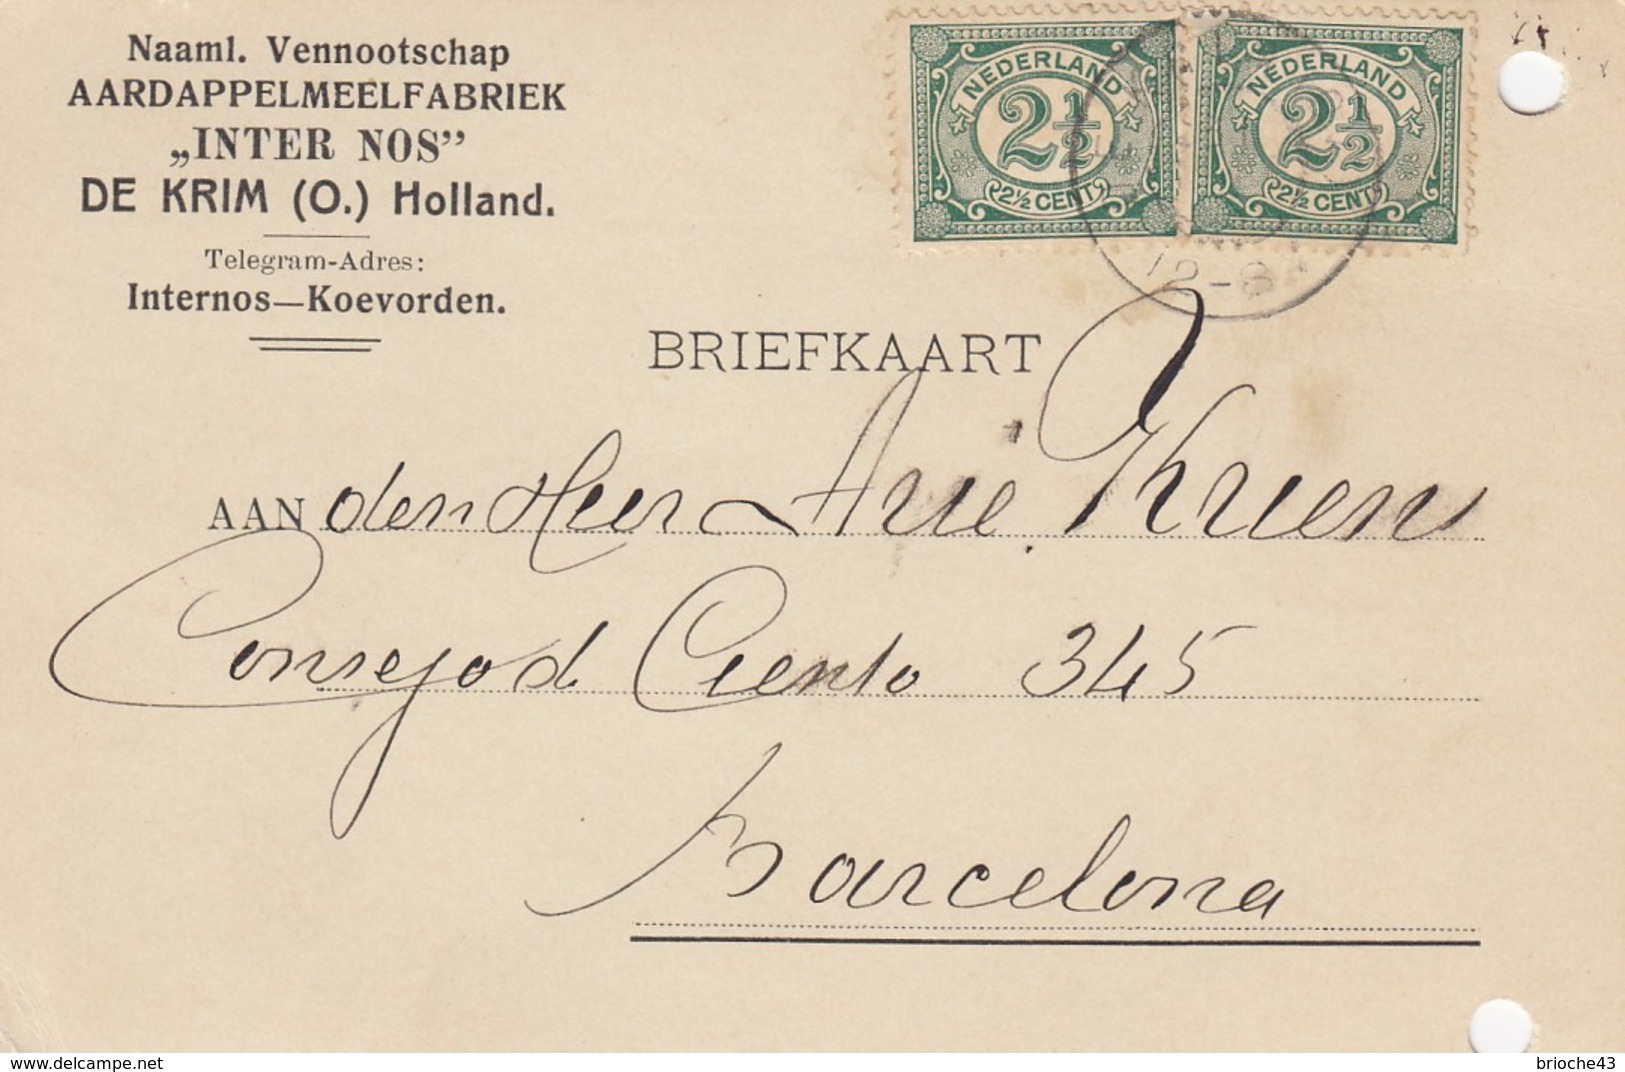 Naaml. Vennootschap
AARDAPPELMEELFABRIEK
„INTER NOS”
DE KRIM (O.) Holland.
Telegram-Adres:
Internos—Koevorden.
NEDERLAND
2 1/2
2½ CENT
NEDERLAND
2 1/2
2½ CENT
12-8
BRIEFKAART
AAN den Heer Arie Kriens
Consejo d Ciento 345
Barcelona
www.delcampe.net
brioche43